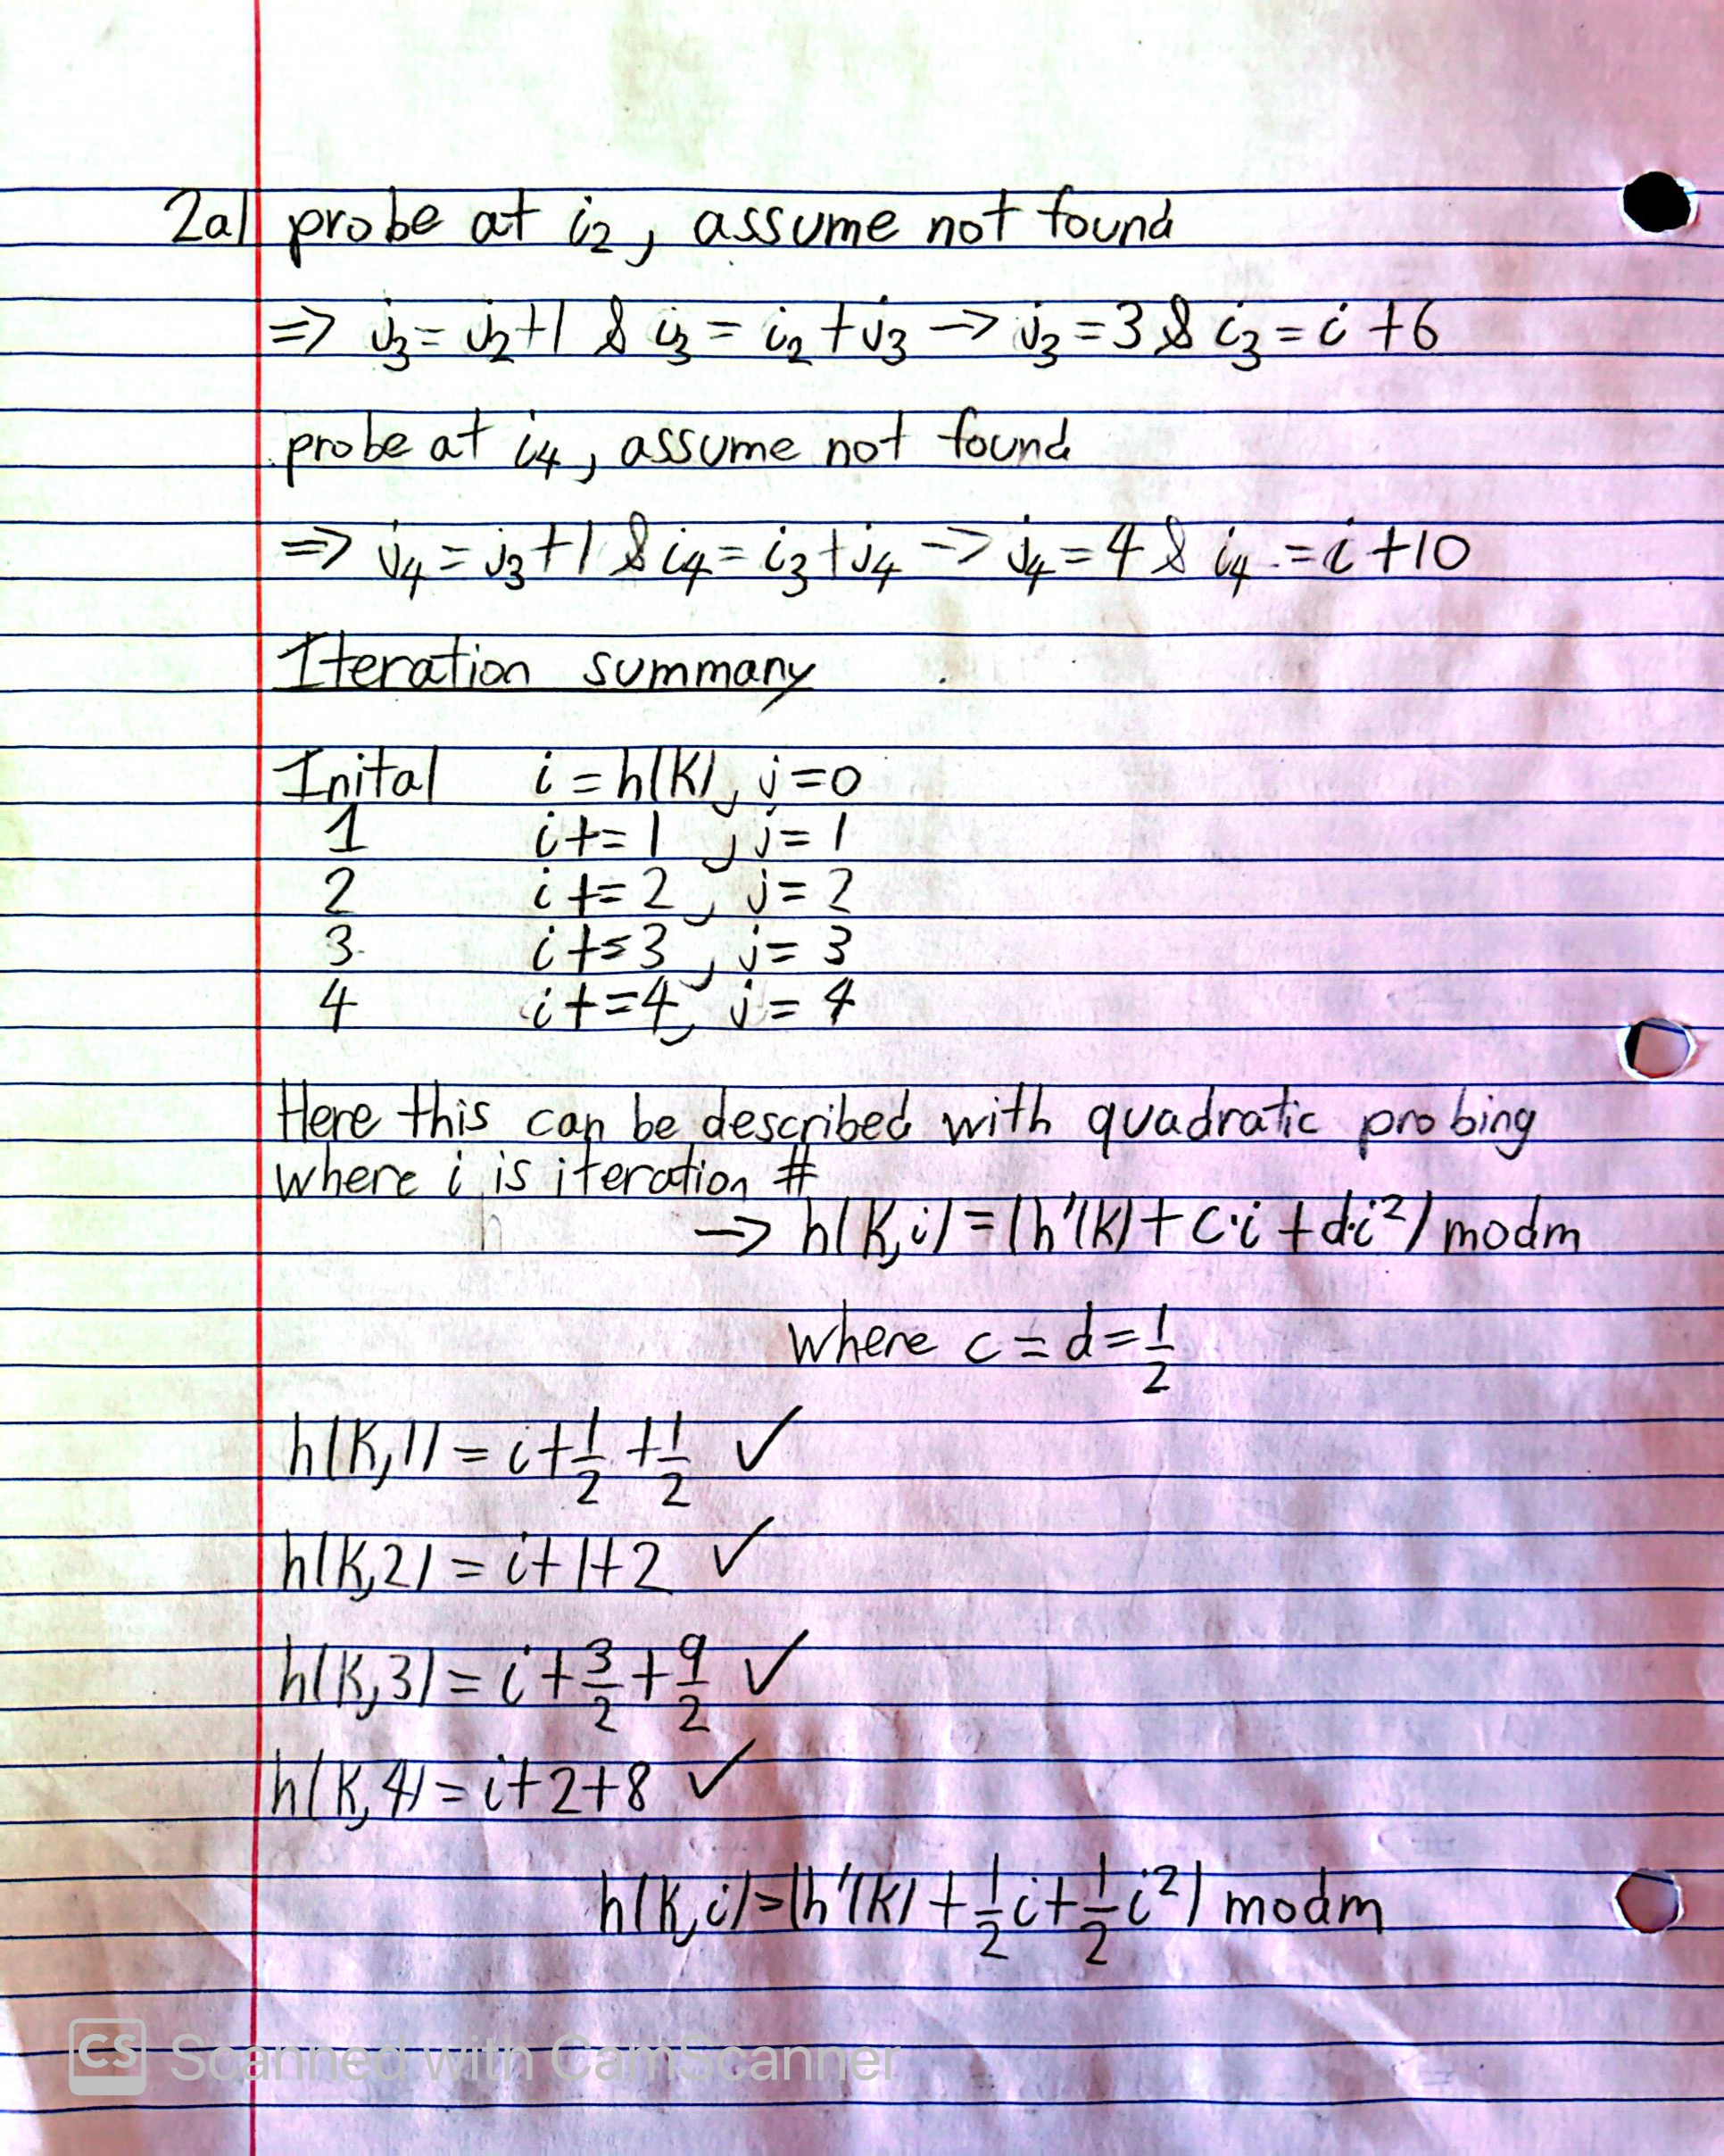 2a) probe at i₂, assume not found
=> j₃ = j₂+1 & i₃ = i₂+j₃ -> j₃ = 3 & i₃ = i+6
probe at i₄, assume not found
=> j₄ = j₃+1 & i₄ = i₃+j₄ -> j₄ = 4 & i₄ = i+10
Iteration summary
Inital i = h(k), j=0
1 i += 1, j = 1
2 i += 2, j = 2
3 i += 3, j = 3
4 i += 4, j = 4
Here this can be described with quadratic probing
where i is iteration #
-> h(k,i) = (h'(k) + c·i + d·i²) mod m
where c = d = 1/2
h(k,1) = i + 1/2 + 1/2 ✓
h(k,2) = i+1+2 ✓
h(k,3) = i + 3/2 + 9/2 ✓
h(k,4) = i+2+8 ✓
h(k,i) = (h'(k) + 1/2 i + 1/2 i²) mod m
CS Scanned with CamScanner